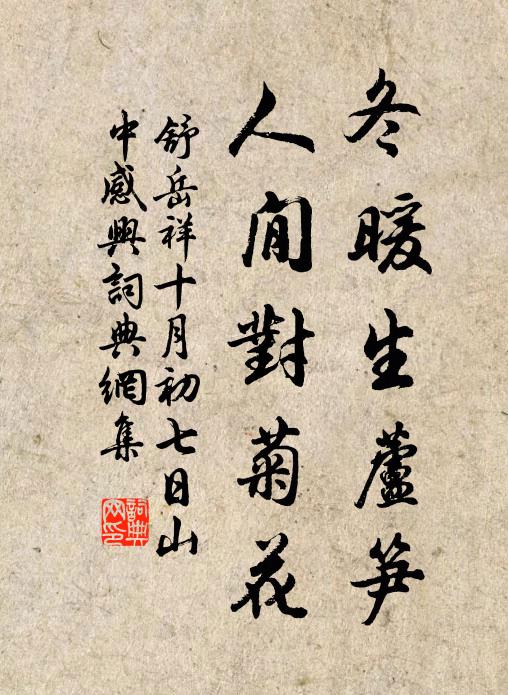 冬暖生蘆笋
人閒對菊花
舒岳祥十月初七日山
中感興詞典網集
詞典
网印